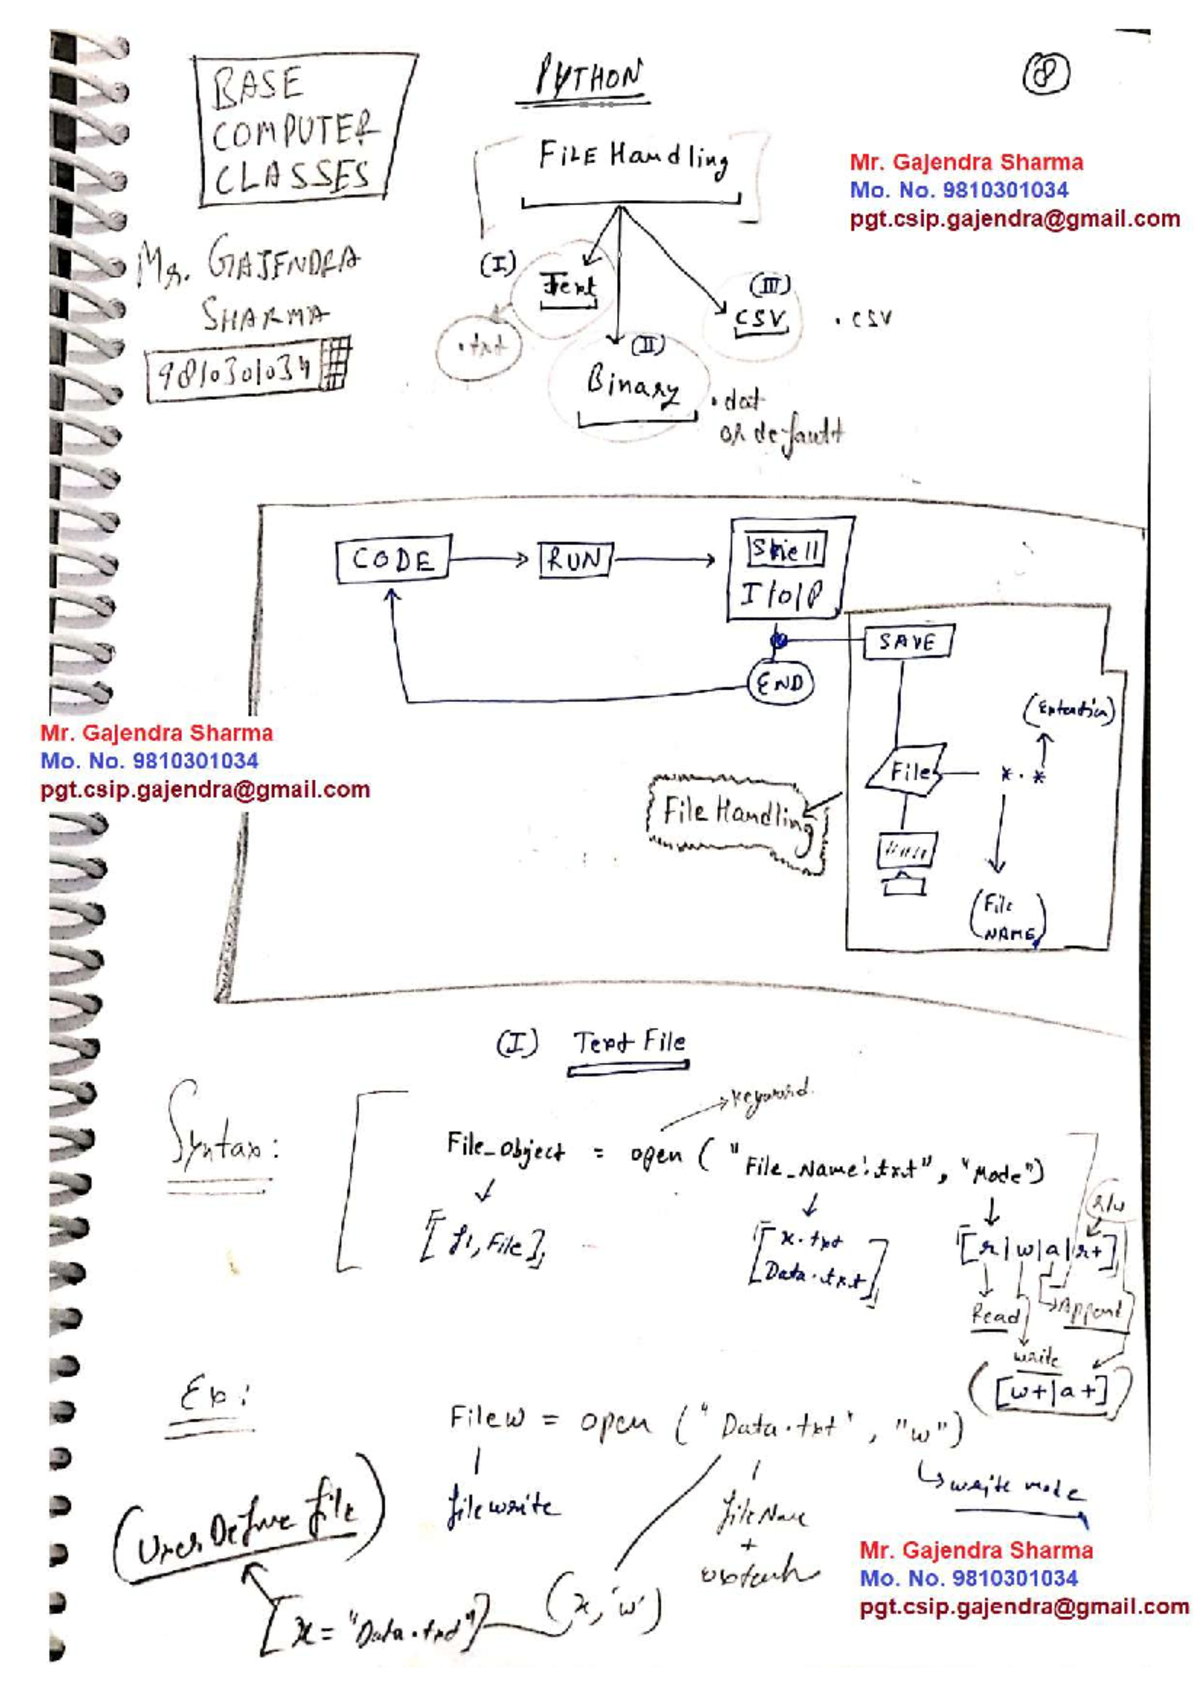 BASE
COMPUTER
CLASSES
PYTHON
8
File Handling
Mr. Gajendra Sharma
Mo. No. 9810301034
pgt.csip.gajendra@gmail.com
Mr. GAJENDRA
SHARMA
9810301034
(I)
Text
.txt
(II)
Binary
.dat
or default
(III)
CSV
.csv
CODE
RUN
Shell
I/O/P
SAVE
END
(Extention)
File
*.*
File Handling
(File
NAME)
Mr. Gajendra Sharma
Mo. No. 9810301034
pgt.csip.gajendra@gmail.com
(I) Text File
keyword.
Syntax:
File_object = open ("File_Name.txt", "Mode")
[f1, File]
[x.txt
Data.txt]
r/w
[r|w|a|r+]
Read
Append
write
([w+|a+])
Ex:
Filew = open ("Data.txt", "w")
file write
file Name
+
write mode
(User Define file)
[x = "Data.txt"]
(x, 'w')
Mr. Gajendra Sharma
Mo. No. 9810301034
pgt.csip.gajendra@gmail.com